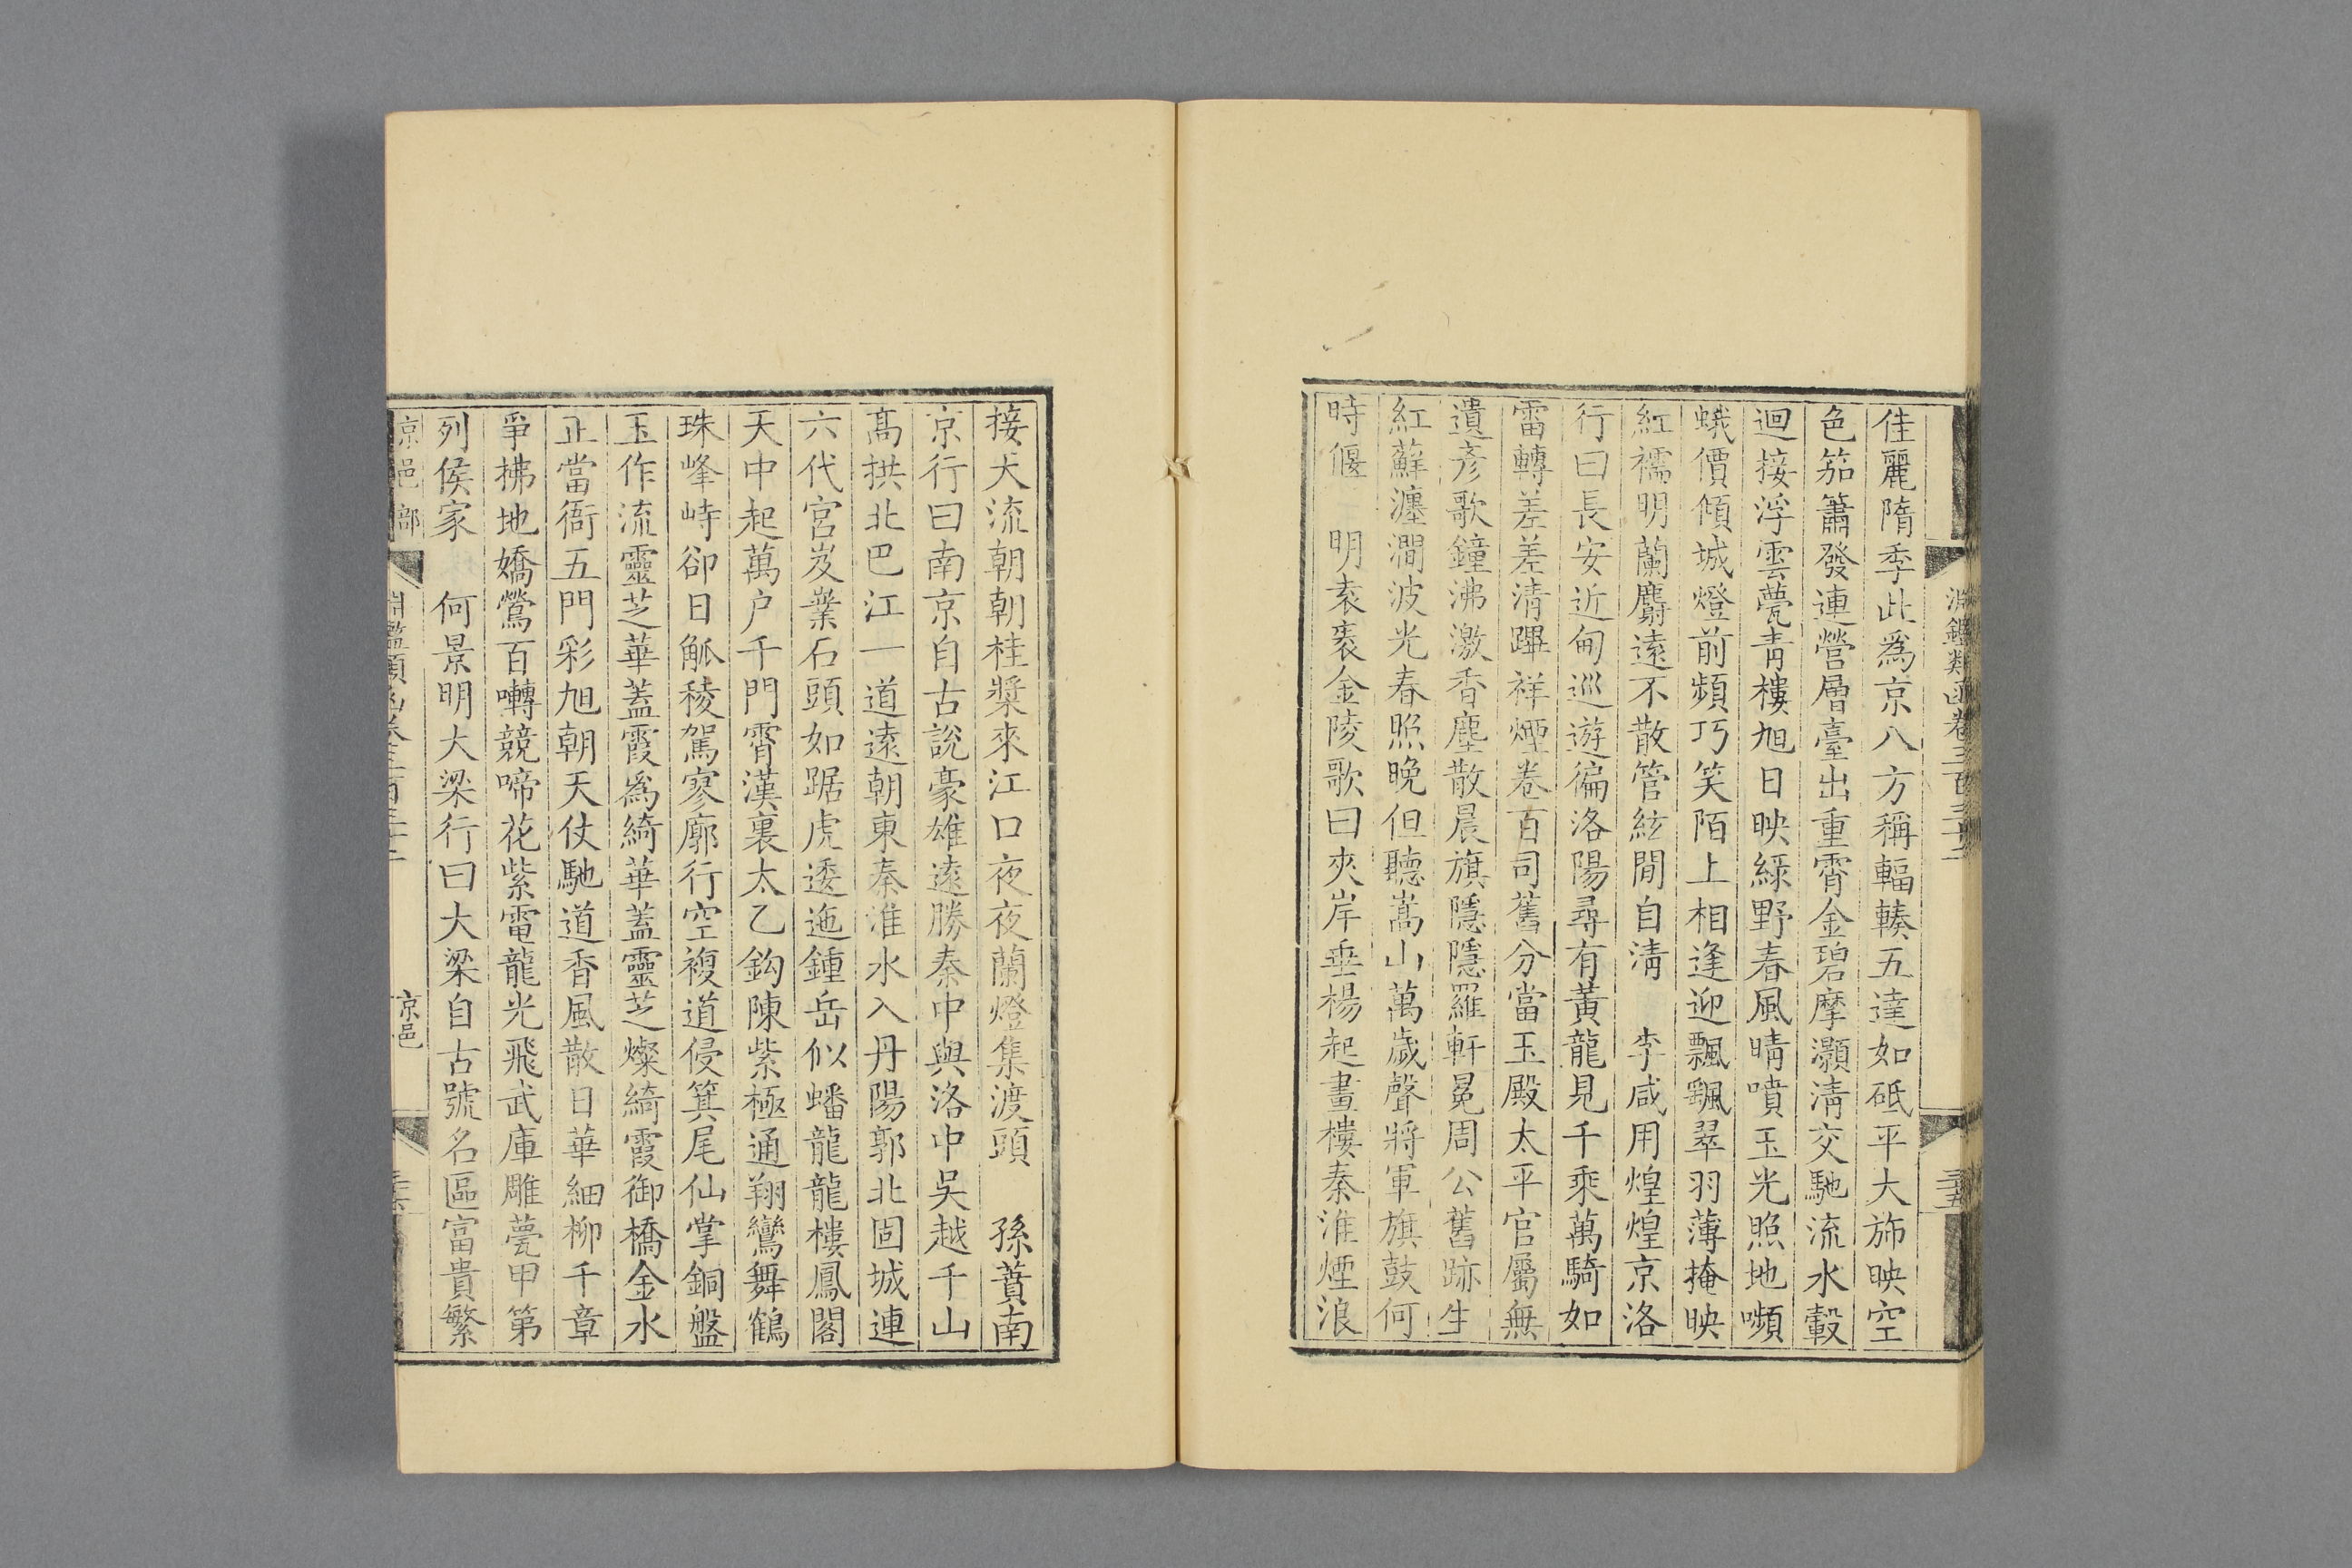 佳麗隋季此爲京八方稱輻輳五達如砥平大斾映空
色笳簫發連營層臺出重霄金碧摩灝清交馳流水轂
迴接浮雲甍青樓旭日映綠野春風晴噴玉光照地嚬
蛾價傾城燈前頻巧笑陌上相逢迎飄颻翠羽薄掩映
紅襦明蘭麝遠不散管絃閒自清　李咸用煌煌京洛
行曰長安近甸巡遊徧洛陽尋有黃龍見千乘萬騎如
雷轉差差清蹕祥煙卷百司舊分當玉殿太平官屬無
遺彥歌鐘沸激香塵散晨旗隱隱羅軒冕周公舊跡生
紅蘚瀍澗波光春照晚但聽嵩山萬歲聲將軍旗鼓何
時偃　明袁袠金陵歌曰夾岸垂楊起畫樓秦淮煙浪
淵鑑類函卷三百三十二
三十五
接天流朝朝桂槳來江口夜夜蘭燈集渡頭　孫蕡南
京行曰南京自古說豪雄遠勝秦中與洛中吳越千山
高拱北巴江一道遠朝東秦淮水入丹陽郭北固城連
六代宮岌嶪石頭如踞虎逶迤鍾岳似蟠龍龍樓鳳閣
天中起萬户千門霄漢裏太乙鈎陳紫極通翔鸞舞鶴
珠峰峙卻日觚稜駕寥廓行空複道侵箕尾仙掌銅盤
玉作流靈芝華蓋霞爲綺華蓋靈芝燦綺霞御橋金水
正當衙五門彩旭朝天仗馳道香風散日華細柳千章
爭拂地嬌鶯百囀競啼花紫電龍光飛武庫雕甍甲第
列侯家　何景明大梁行曰大梁自古號名區富貴繁
京邑部
淵鑑類函卷三百三十二
京邑